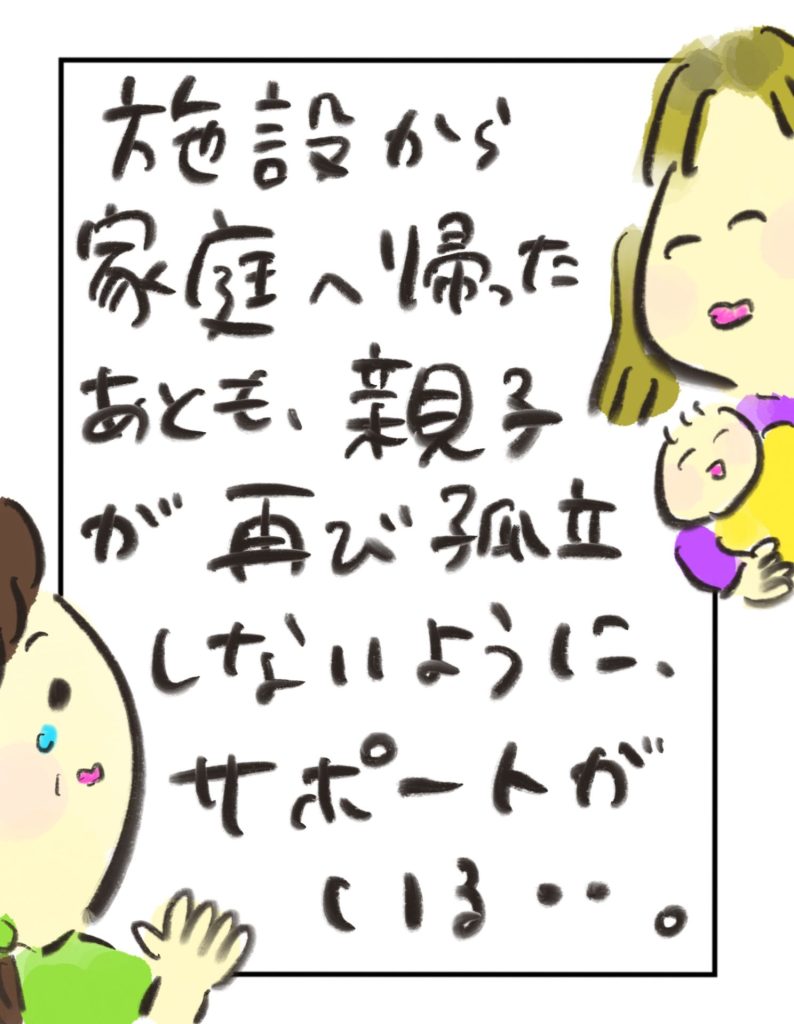 施設から
家庭へ帰った
あとも、親子
が再び孤立
しないように、
サポートが
いる・・。